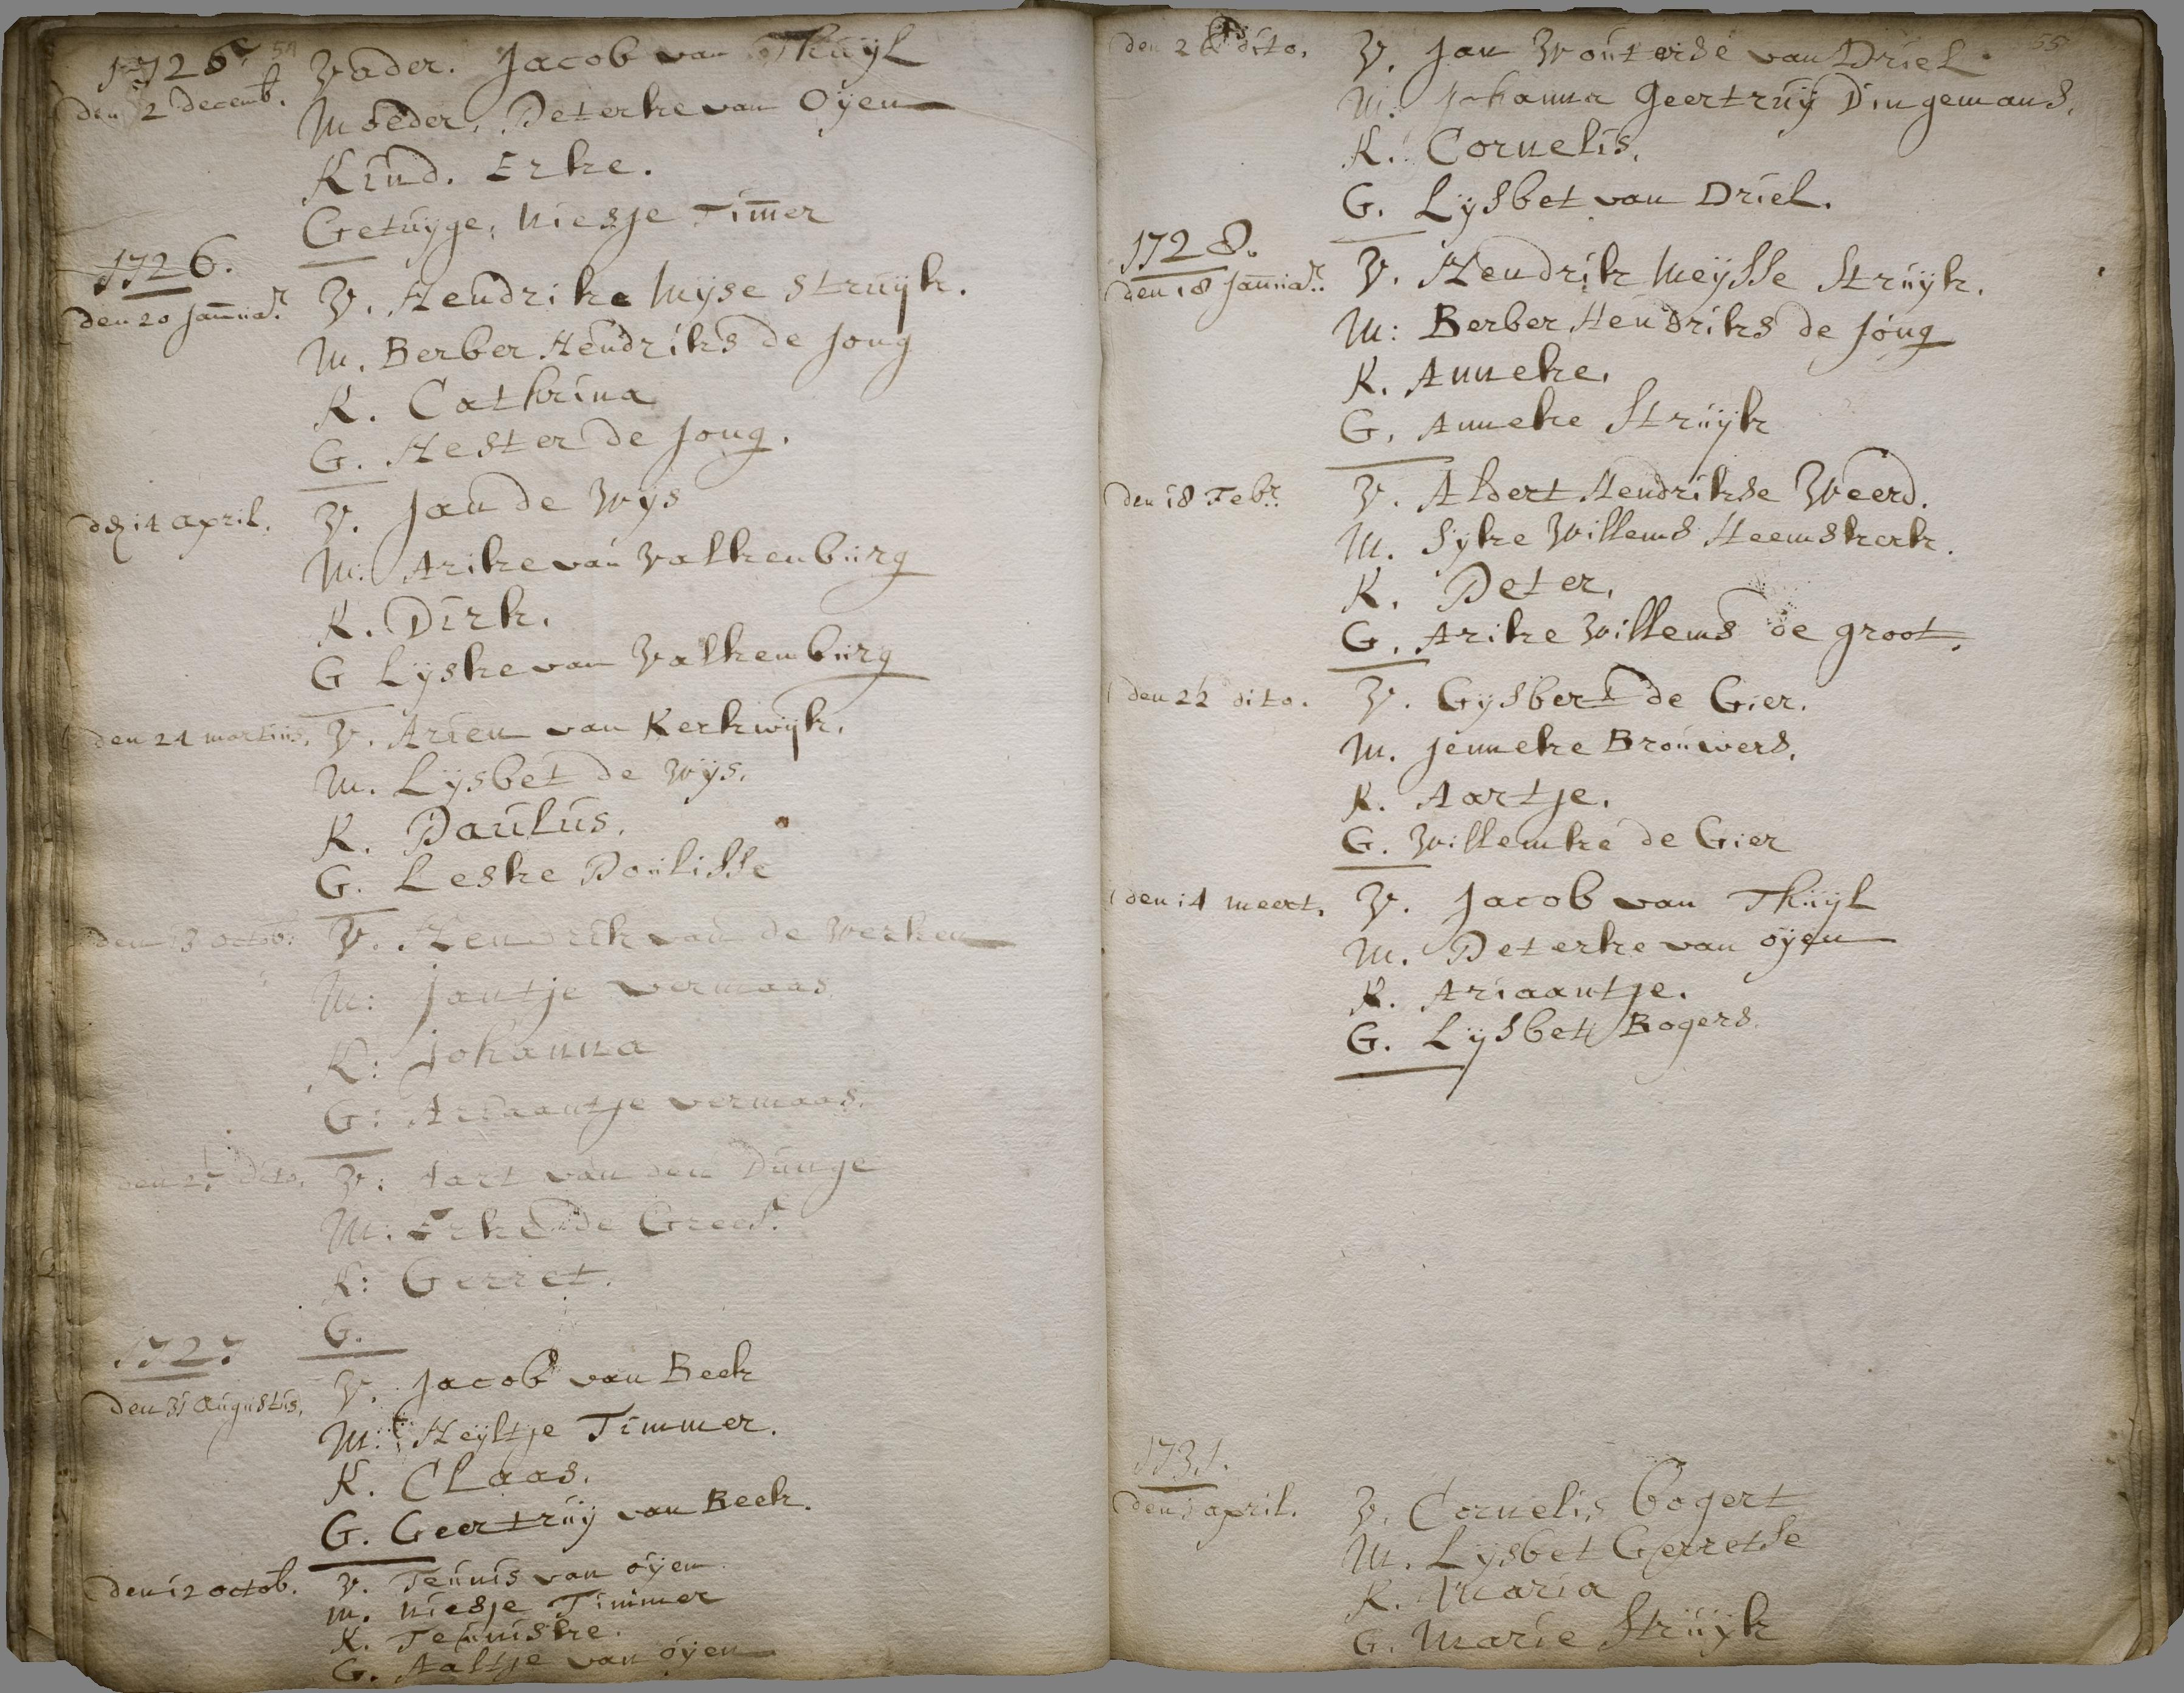 1725. 54
den 2 decemb. Vader. Jacob van Thuÿl
Moeder. Peterke van Oÿen
Kind. Erke.
Getuÿge; Niesje Tim̄er
1726.
den 20 Jan̄uar. V. Hendrike Mÿse Struÿk.
M. Berber Hendriks de Jong
K. Cathrina
G. Hester de Jong.
den 14 april. V. Jan de Wÿs
M: Arike van Valkenburg
K. Dirk.
G Lÿske van Valkenburg
den 24 martius. V. Arien van Kerkwÿk.
M. Lÿsbet de Wÿs.
K. Paulus.
G. Leske Poulisse
den 13 octob: V. Hendrik van de Werken
M: Jantje vermaas
K: Johanna
G: Ariaantje vermaas.
den 27 dito. V: Aart van den Dunge
M: Erke de Greef.
K: Gerret.
G.
1727
den 31 Augustus. V. Jacob van Beek
M: Heÿltje Timmer.
K. Claas.
G. Geertruÿ van Beek.
den 12 octob. V. Teunis van oÿen
M. Niesje Timmer
K. Teuniske.
G. Aaltje van oÿen
55
den 26 dito. V. Jan Wouterse van Driel
M. Johanna Geertruÿ Dingemans.
K. Cornelis.
G. Lÿsbet van Driel.
1728.
den 18 Jan̄uar. V. Hendrik Meÿsse Struÿk.
M: Berber Hendriks de Jong
K. Anneke.
G. Anneke Struÿk
den 18 Febr. V. Albert Hendrikse Weerd.
M. Sÿke Willems Heemskerk.
K. Peter.
G. Arike Willems de groot.
den 22 dito. V. Gÿsbert de Gier.
M. Jenneke Brouwers.
K. Aartje.
G. Willemke de Gier
den 14 meert. V. Jacob van Thuÿl
M. Peterke van oÿen
K. Ariaantje.
G. Lÿsbet Bogers.
1731.
den 1 april. V. Cornelis Bogert
M. Lÿsbet Gerretse
K. Maria
G. Marie Struÿk